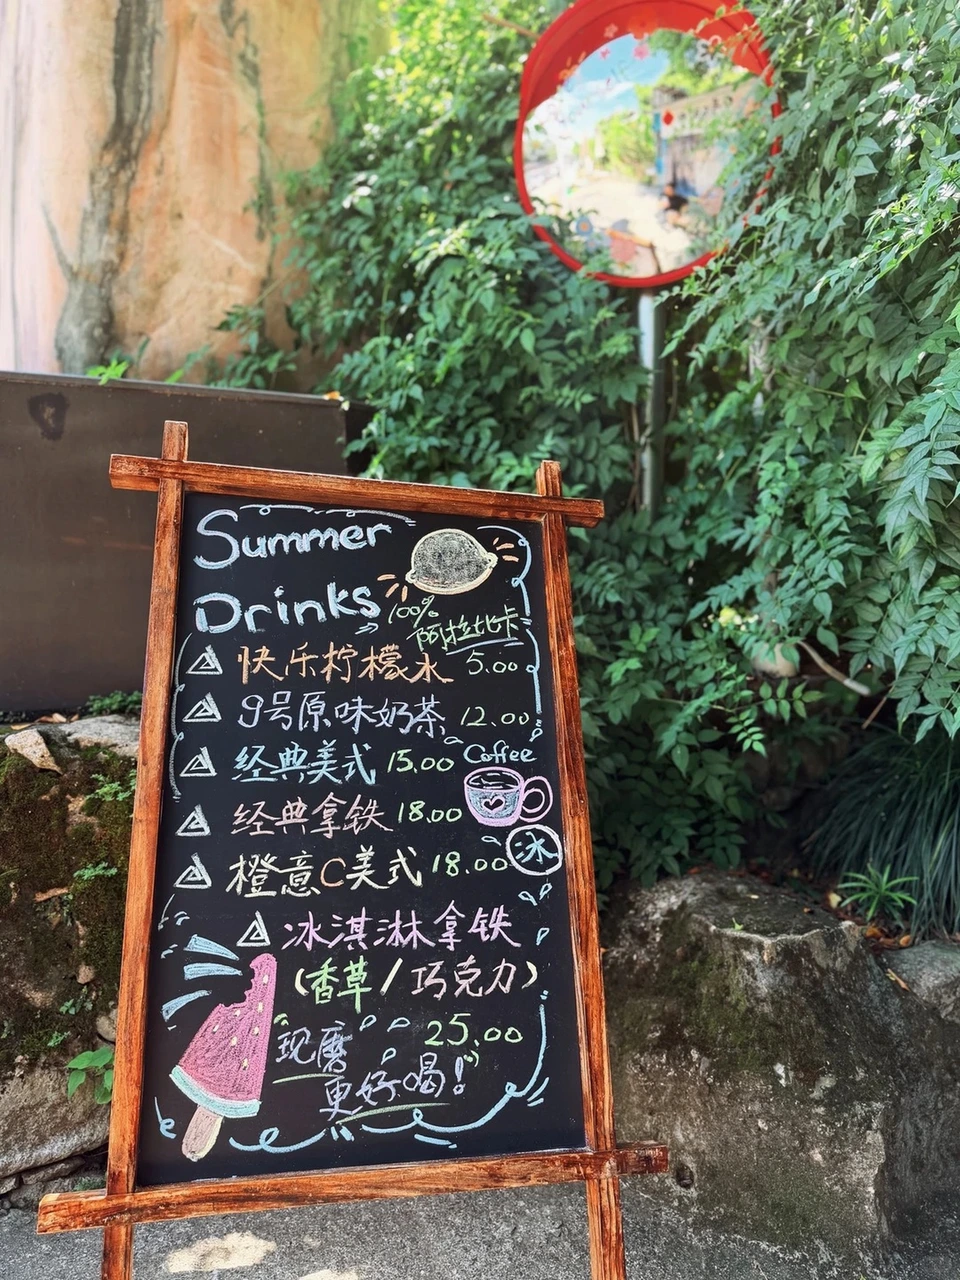 Summer
Drinks
100%
阿拉比卡
快乐柠檬水 5.00
9号原味奶茶 12.00
Coffee
经典美式 15.00
经典拿铁 18.00
冰
橙意C美式 18.00
冰淇淋拿铁
(香草/巧克力)
25.00
现磨
更好喝!